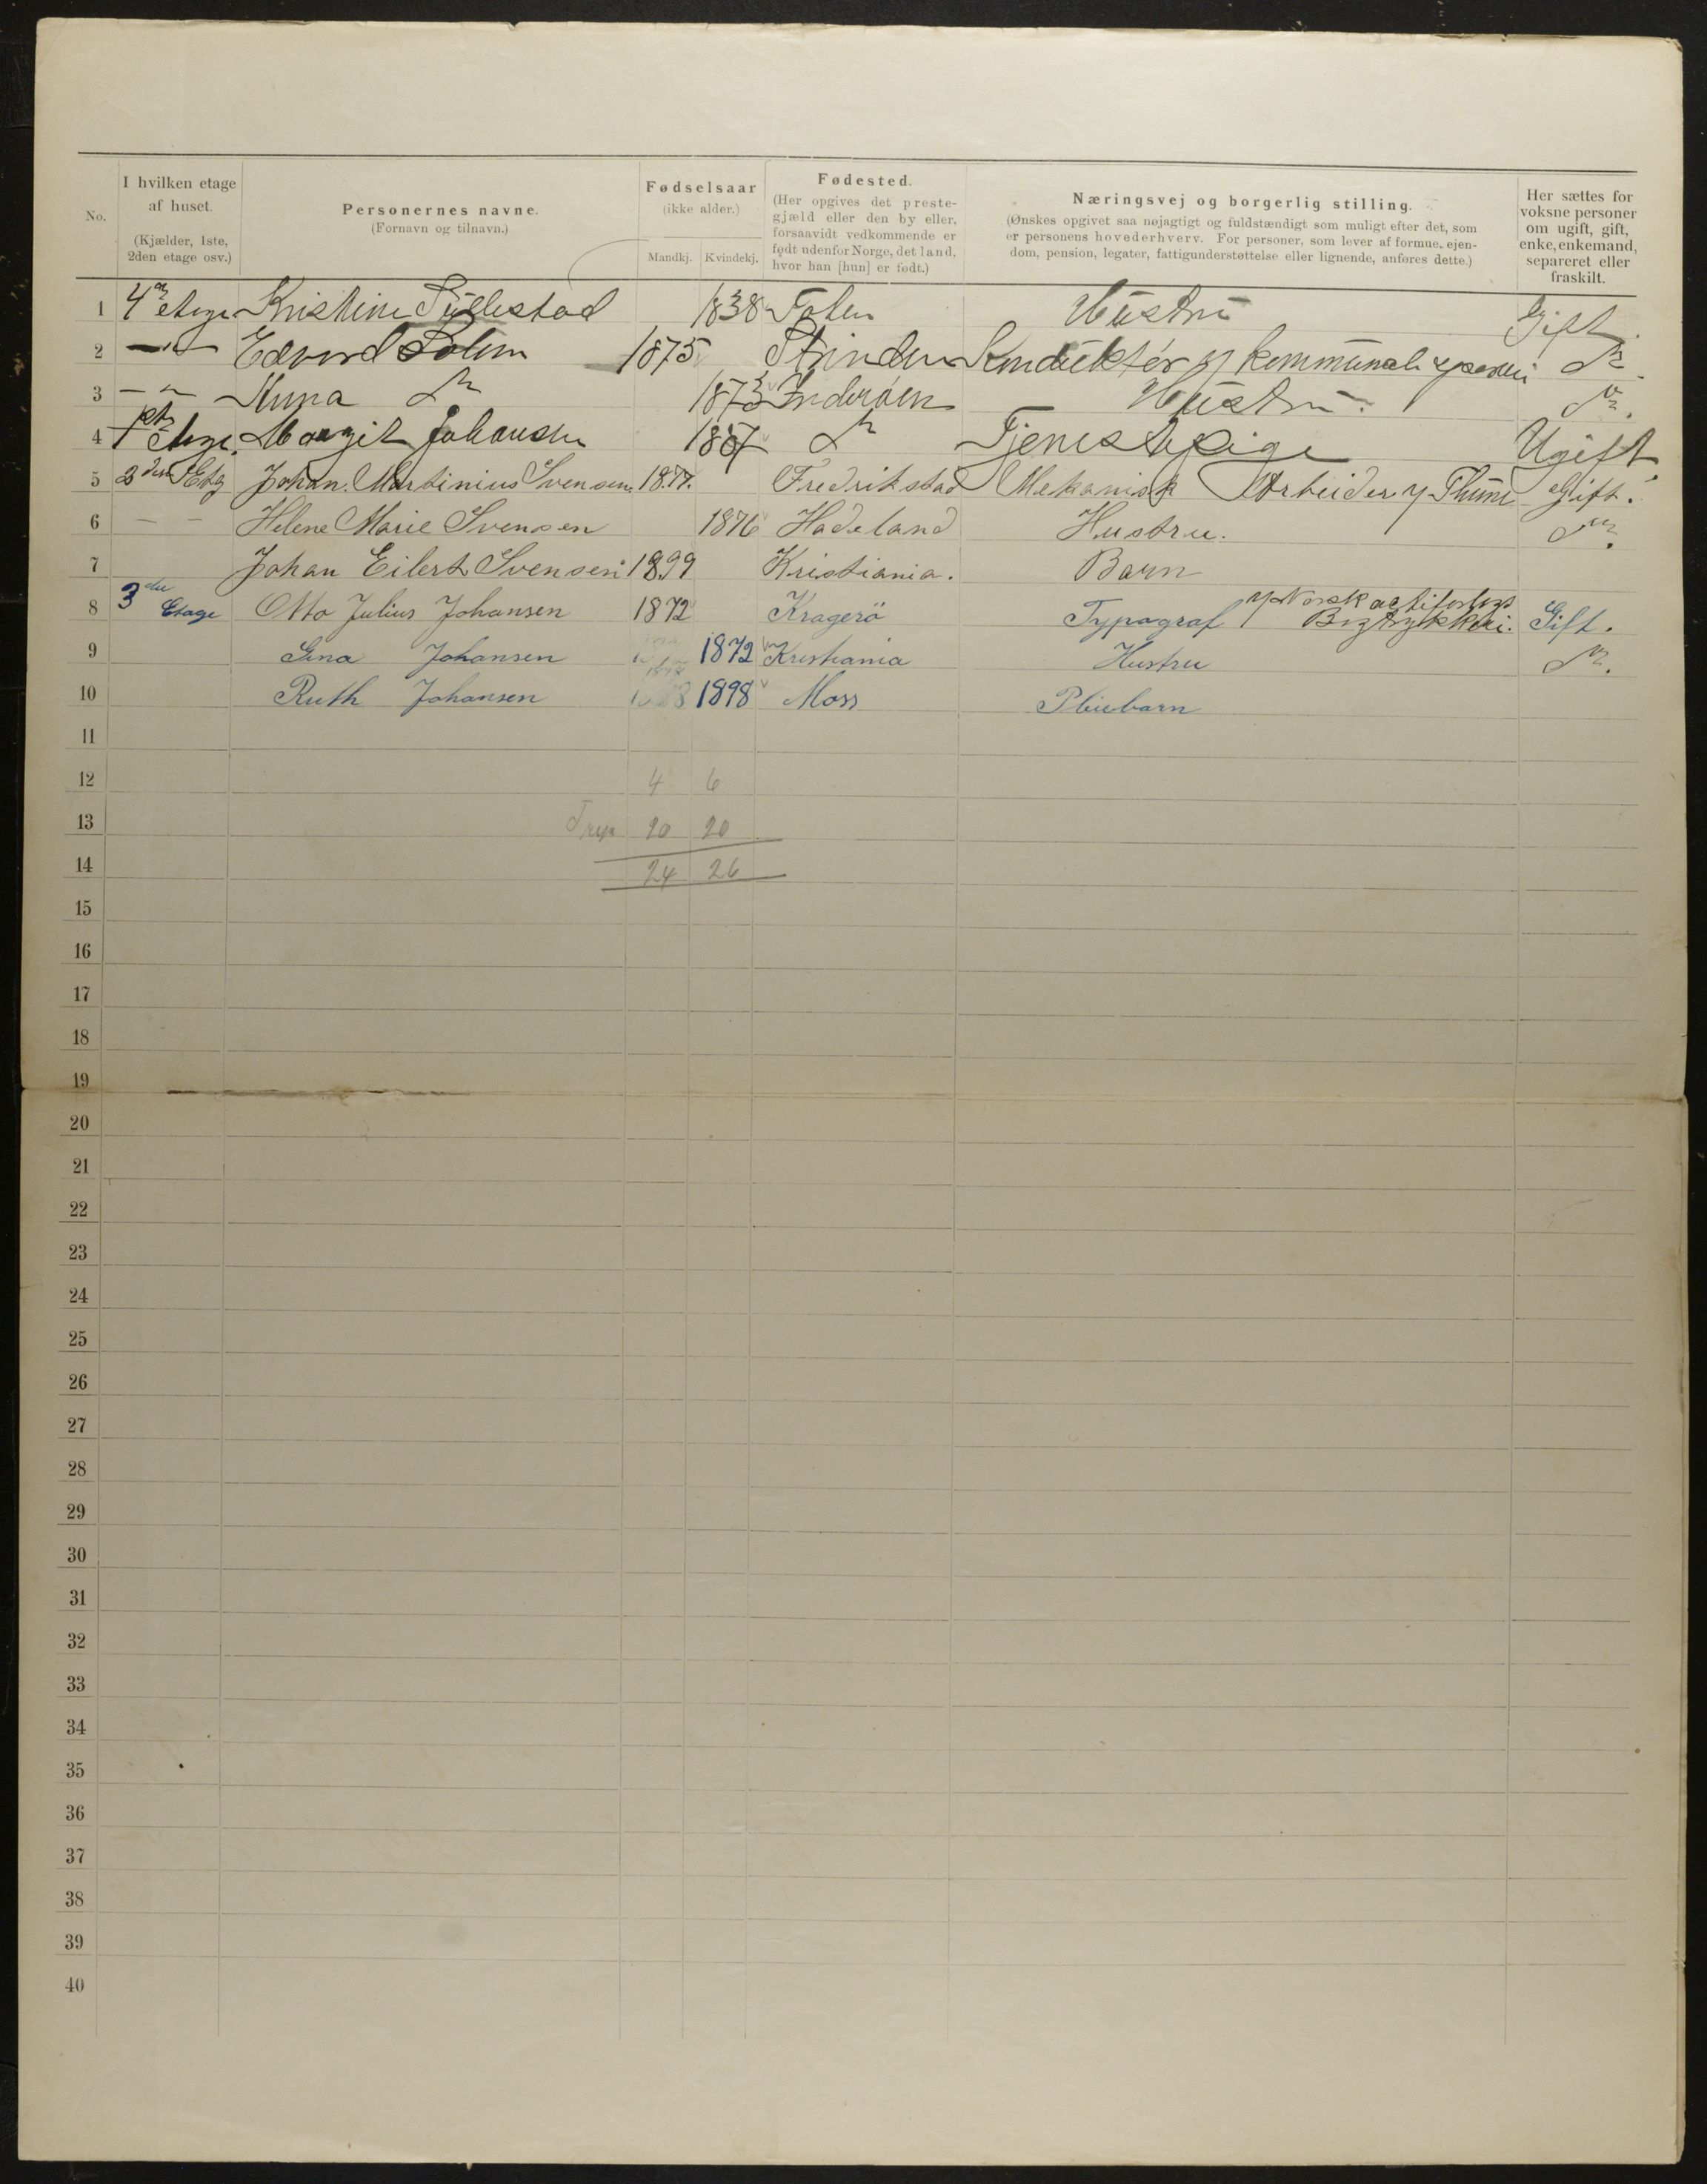 No.
I hvilken etage af huset.
(Kjælder, 1ste, 2den etage osv.)
Personernes navne.
(Fornavn og tilnavn.)
Fødselsaar
(ikke alder.)
Mandkj. Kvindekj.
Fødested.
(Her opgives det preste-
gjæld eller den by eller,
forsaavidt vedkommende er
født udenfor Norge, det land,
hvor han [hun] er født.)
Næringsvej og borgerlig stilling.
(Ønskes opgivet saa nøjagtigt og fuldstændigt som muligt efter det, som
er personens hovederhverv. For personer, som lever af formue, ejen-
dom, pension, legater, fattigunderstøttelse eller lignende, anføres dette.)
Her sættes for
voksne personer
om ugift, gift,
enke, enkemand,
separeret eller
fraskilt.
1 4 etage Kristine 1838 Hustru Gift
2 —"— Edvard Solem 1875 Strinden Konduktør
3 — " — Anna 1873 Inderøen Hustru
4 1 etage Margit Johansen Tjenestepige Ugift
5 2den Etg Johan Martinius Svensen 1877. Fredrikstad Mekanisk Arbeider Gift.
6 — — Helene Marie Svensen 1876 Hadeland Hustru.
7 Johan Eilert Svensen 1899 Kristiania. Barn
8 3die Etage Otto Julius Johansen 1872 Kragerö Typograf Gift.
9 Gina Johansen 1872 Kristiania Hustru
10 Ruth Johansen 1898 Moss Pleiebarn
11
12 4 6
13 20 20
14 24 26
15
16
17
18
19
20
21
22
23
24
25
26
27
28
29
30
31
32
33
34
35
36
37
38
39
40